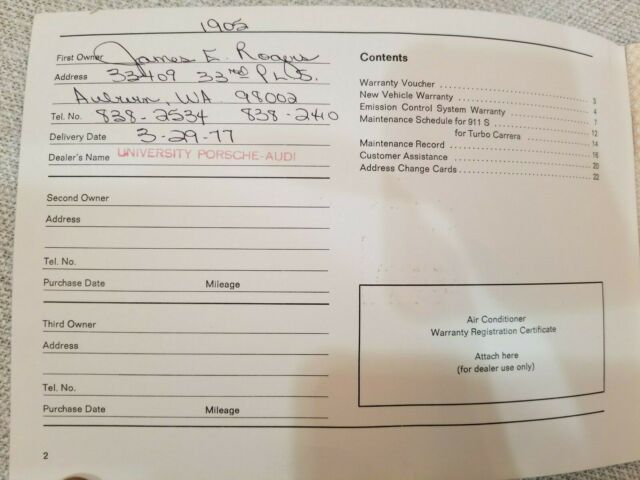 1902
First Owner James E. Rogers
Address 33409 33rd Pl. S.
Auburn, WA 98002
Tel. No. 838-2534 838-2410
Delivery Date 3-29-77
Dealer's Name UNIVERSITY PORSCHE-AUDI
Second Owner
Address
Tel. No.
Purchase Date Mileage
Third Owner
Address
Tel. No.
Purchase Date Mileage
2
Contents
Warranty Voucher
New Vehicle Warranty 3
Emission Control System Warranty 4
Maintenance Schedule for 911 S 7
for Turbo Carrera 12
Maintenance Record 14
Customer Assistance 16
Address Change Cards 20
22
Air Conditioner
Warranty Registration Certificate
Attach here
(for dealer use only)